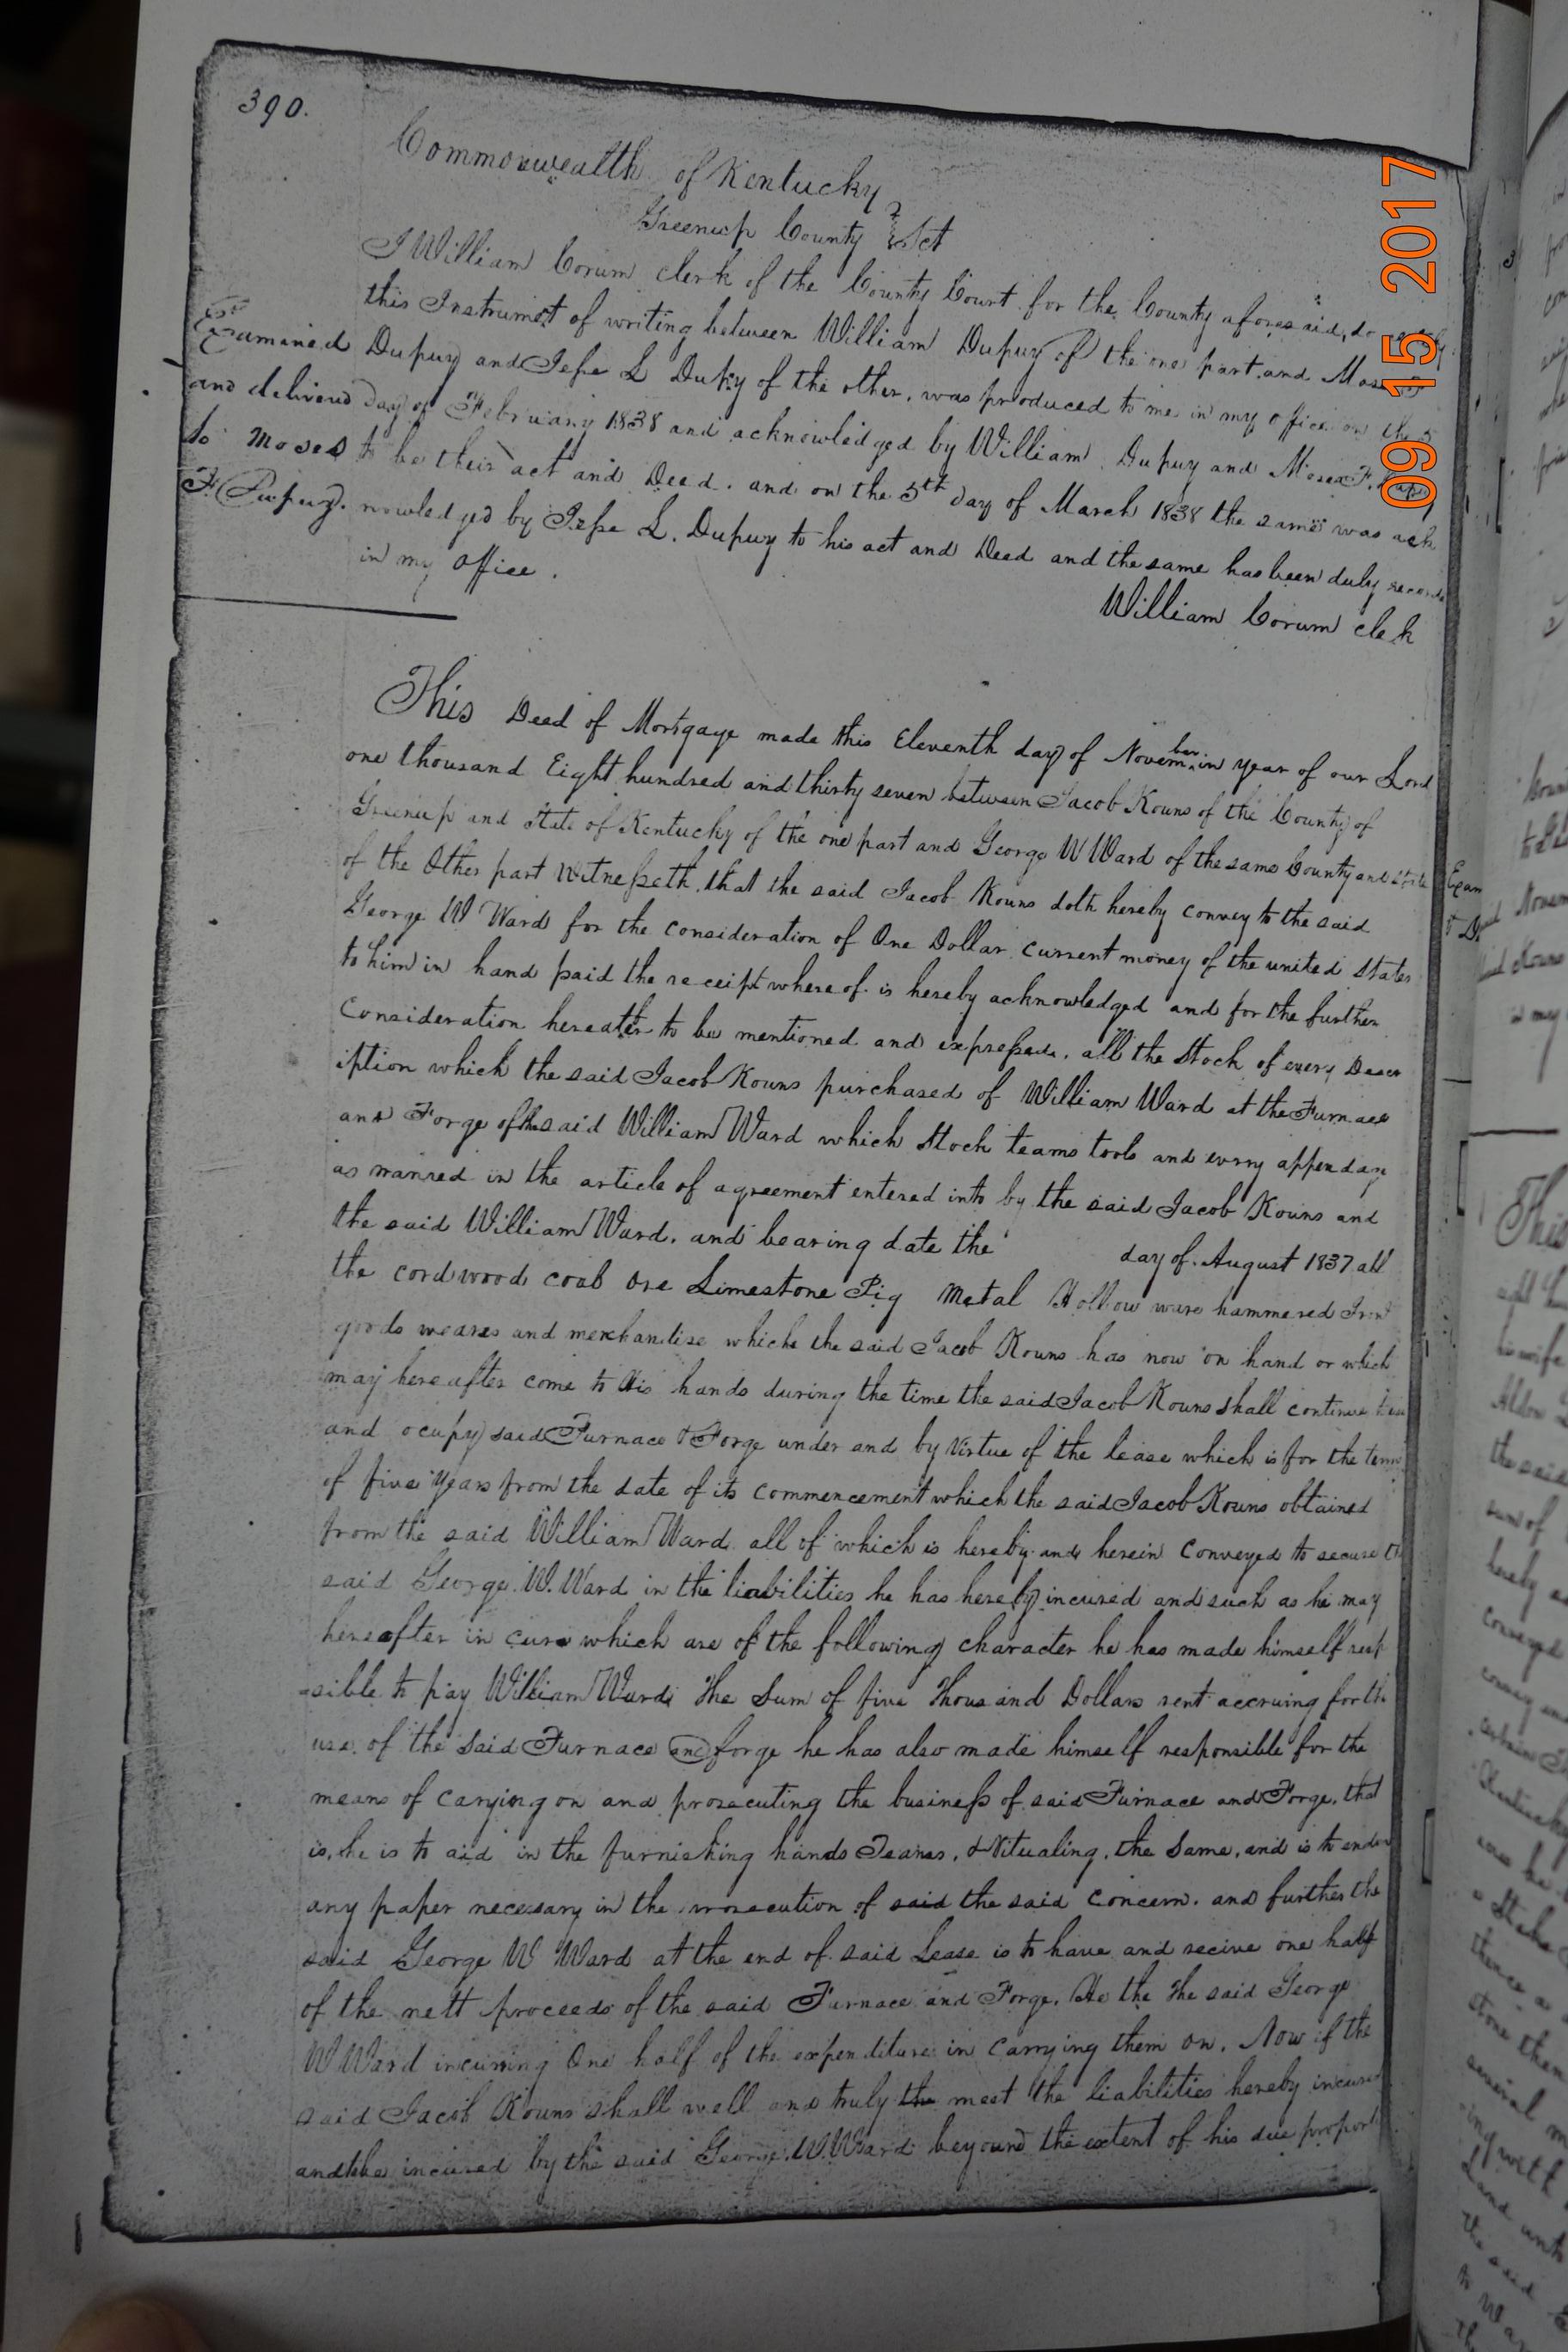 390.
Commonwealth of Kentucky
Greenup County Sct
I William Corum clerk of the County Court for the County aforesaid, do
this Instrument of writing between William Dupuy of the one part and Moses
Dupuy and Jesse L Dupy of the other, was produced to me in my office on the 5
day of February 1838 and acknowledged by William Dupuy and Moses F.
to be their act and Deed. and on the 5th day of March 1838 the same was ack
nowledged by Jesse L. Dupuy to his act and Deed and the same has been duly
in my office.
William Corum clek
Examined
and delivered
to Moses
F. Dupuy.
This Deed of Mortgage made this Eleventh day of November in year of our Lord
one thousand Eight hundred and thirty seven between Jacob Kouns of the County of
Greenup and State of Kentucky of the one part and George W Ward of the same County and State
of the Other part Witnesseth that the said Jacob Kouns doth hereby convey to the said
George W Ward for the consideration of One Dollar current money of the united States
to him in hand paid the receipt whereof is hereby acknowledged and for the further
Consideration hereater to be mentioned and expressed. all the Stock of every Descr
iption which the said Jacob Kouns purchased of William Ward at the Furnace
and Forge of the said William Ward which Stock teams tools and every appendag
as manred in the article of agreement entered into by the said Jacob Kouns and
the said William Ward. and bearing date the day of August 1837 all
the cordwood coal Ore Limestone Pig Metal Hollow ware hammered Iron
goods weares and merchandise which the said Jacob Kouns has now on hand or which
may hereafter come to his hands during the time the said Jacob Kouns shall continue
and ocupy said Furnace & Forge under and by Virtue of the lease which is for the term
of five Years from the date of its commencement which the said Jacob Kouns obtained
from the said William Ward. all of which is hereby and herein Conveyed to secure
said George W. Ward in the liabilities he has hereby incured and such as he may
hereafter in cure which are of the following character he has made himself resp
sible to pay William Ward the Sum of five Thousand Dollars rent accruing for th
use of the Said Furnace and forge he has also made himself responsible for the
means of carying on and prosecuting the business of said Furnace and Forge. that
is, he is to aid in the furnishing hands Teams, & Vitualing, the Same, and is to endor
any paper necessary in the prosecution of said the said Concern. and further the
said George W Ward at the end of said Lease is to have and recive one half
of the nett proceeds of the said Furnace and Forge. He the the said George
W Ward incurring One half of the expenditure in Carrying them on. Now if the
said Jacob Kouns shall well and truly the meet the liabilities hereby incured
and to be incured by the said George W. Ward beyound the extent of his due proport
09 15 2017
Exam
This